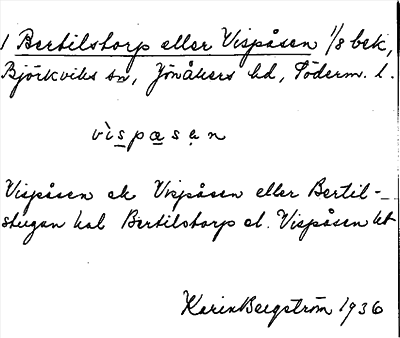 1 Bertilstorp eller Vispåsen 1/8 bek,
Björkviks sn, Jönåkers hd, Söderm. l.
vispæsan
Vispåsen ek Vispåsen eller Bertil-
stugan kal Bertilstorp el. Vispåsen kt
Karin Bergström 1936